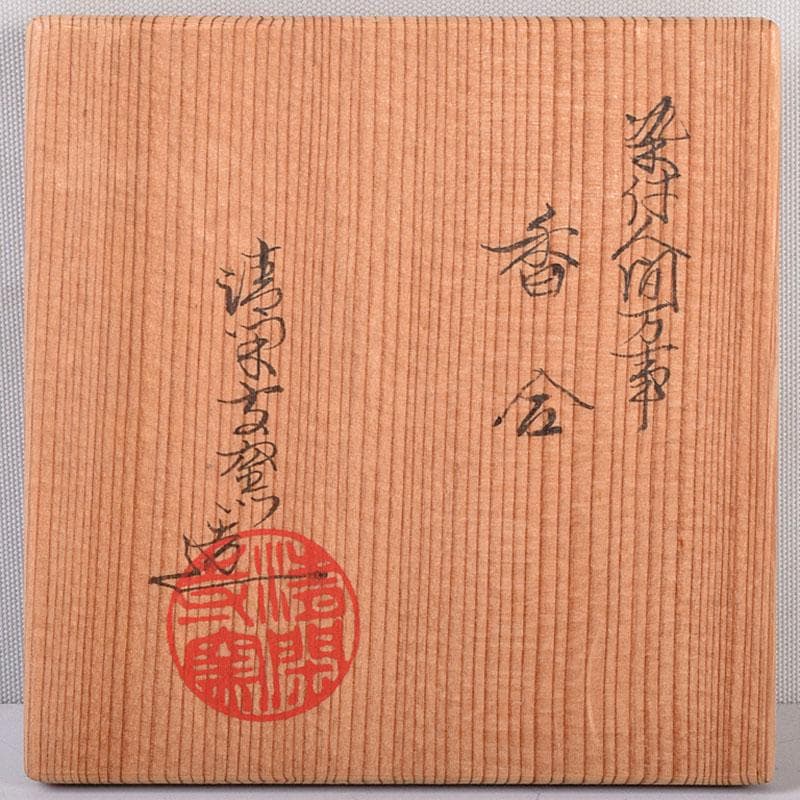 染付人間万事
香合
清閑寺窯造
清閑寺窯